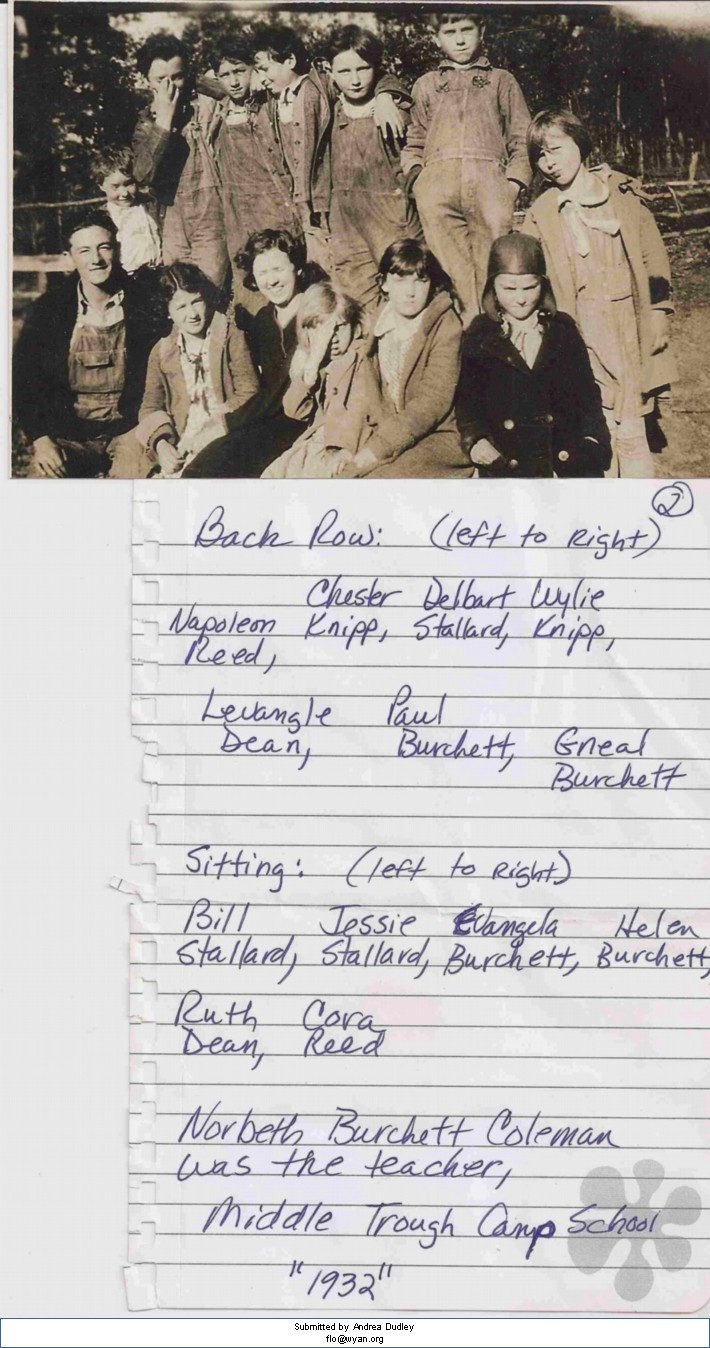 2
Back Row: (left to Right)
Chester Delbart Wylie
Napoleon Knipp, Stallard, Knipp,
Reed,
Levangle Paul
Dean, Burchett, Gneal
Burchett
Sitting: (left to Right)
Bill Jessie Evangela Helen
Stallard, Stallard, Burchett, Burchett,
Ruth Cora
Dean, Reed
Norbeth Burchett Coleman
was the teacher,
Middle Trough Camp School
"1932"
Submitted by Andrea Dudley
flo@wyan.org